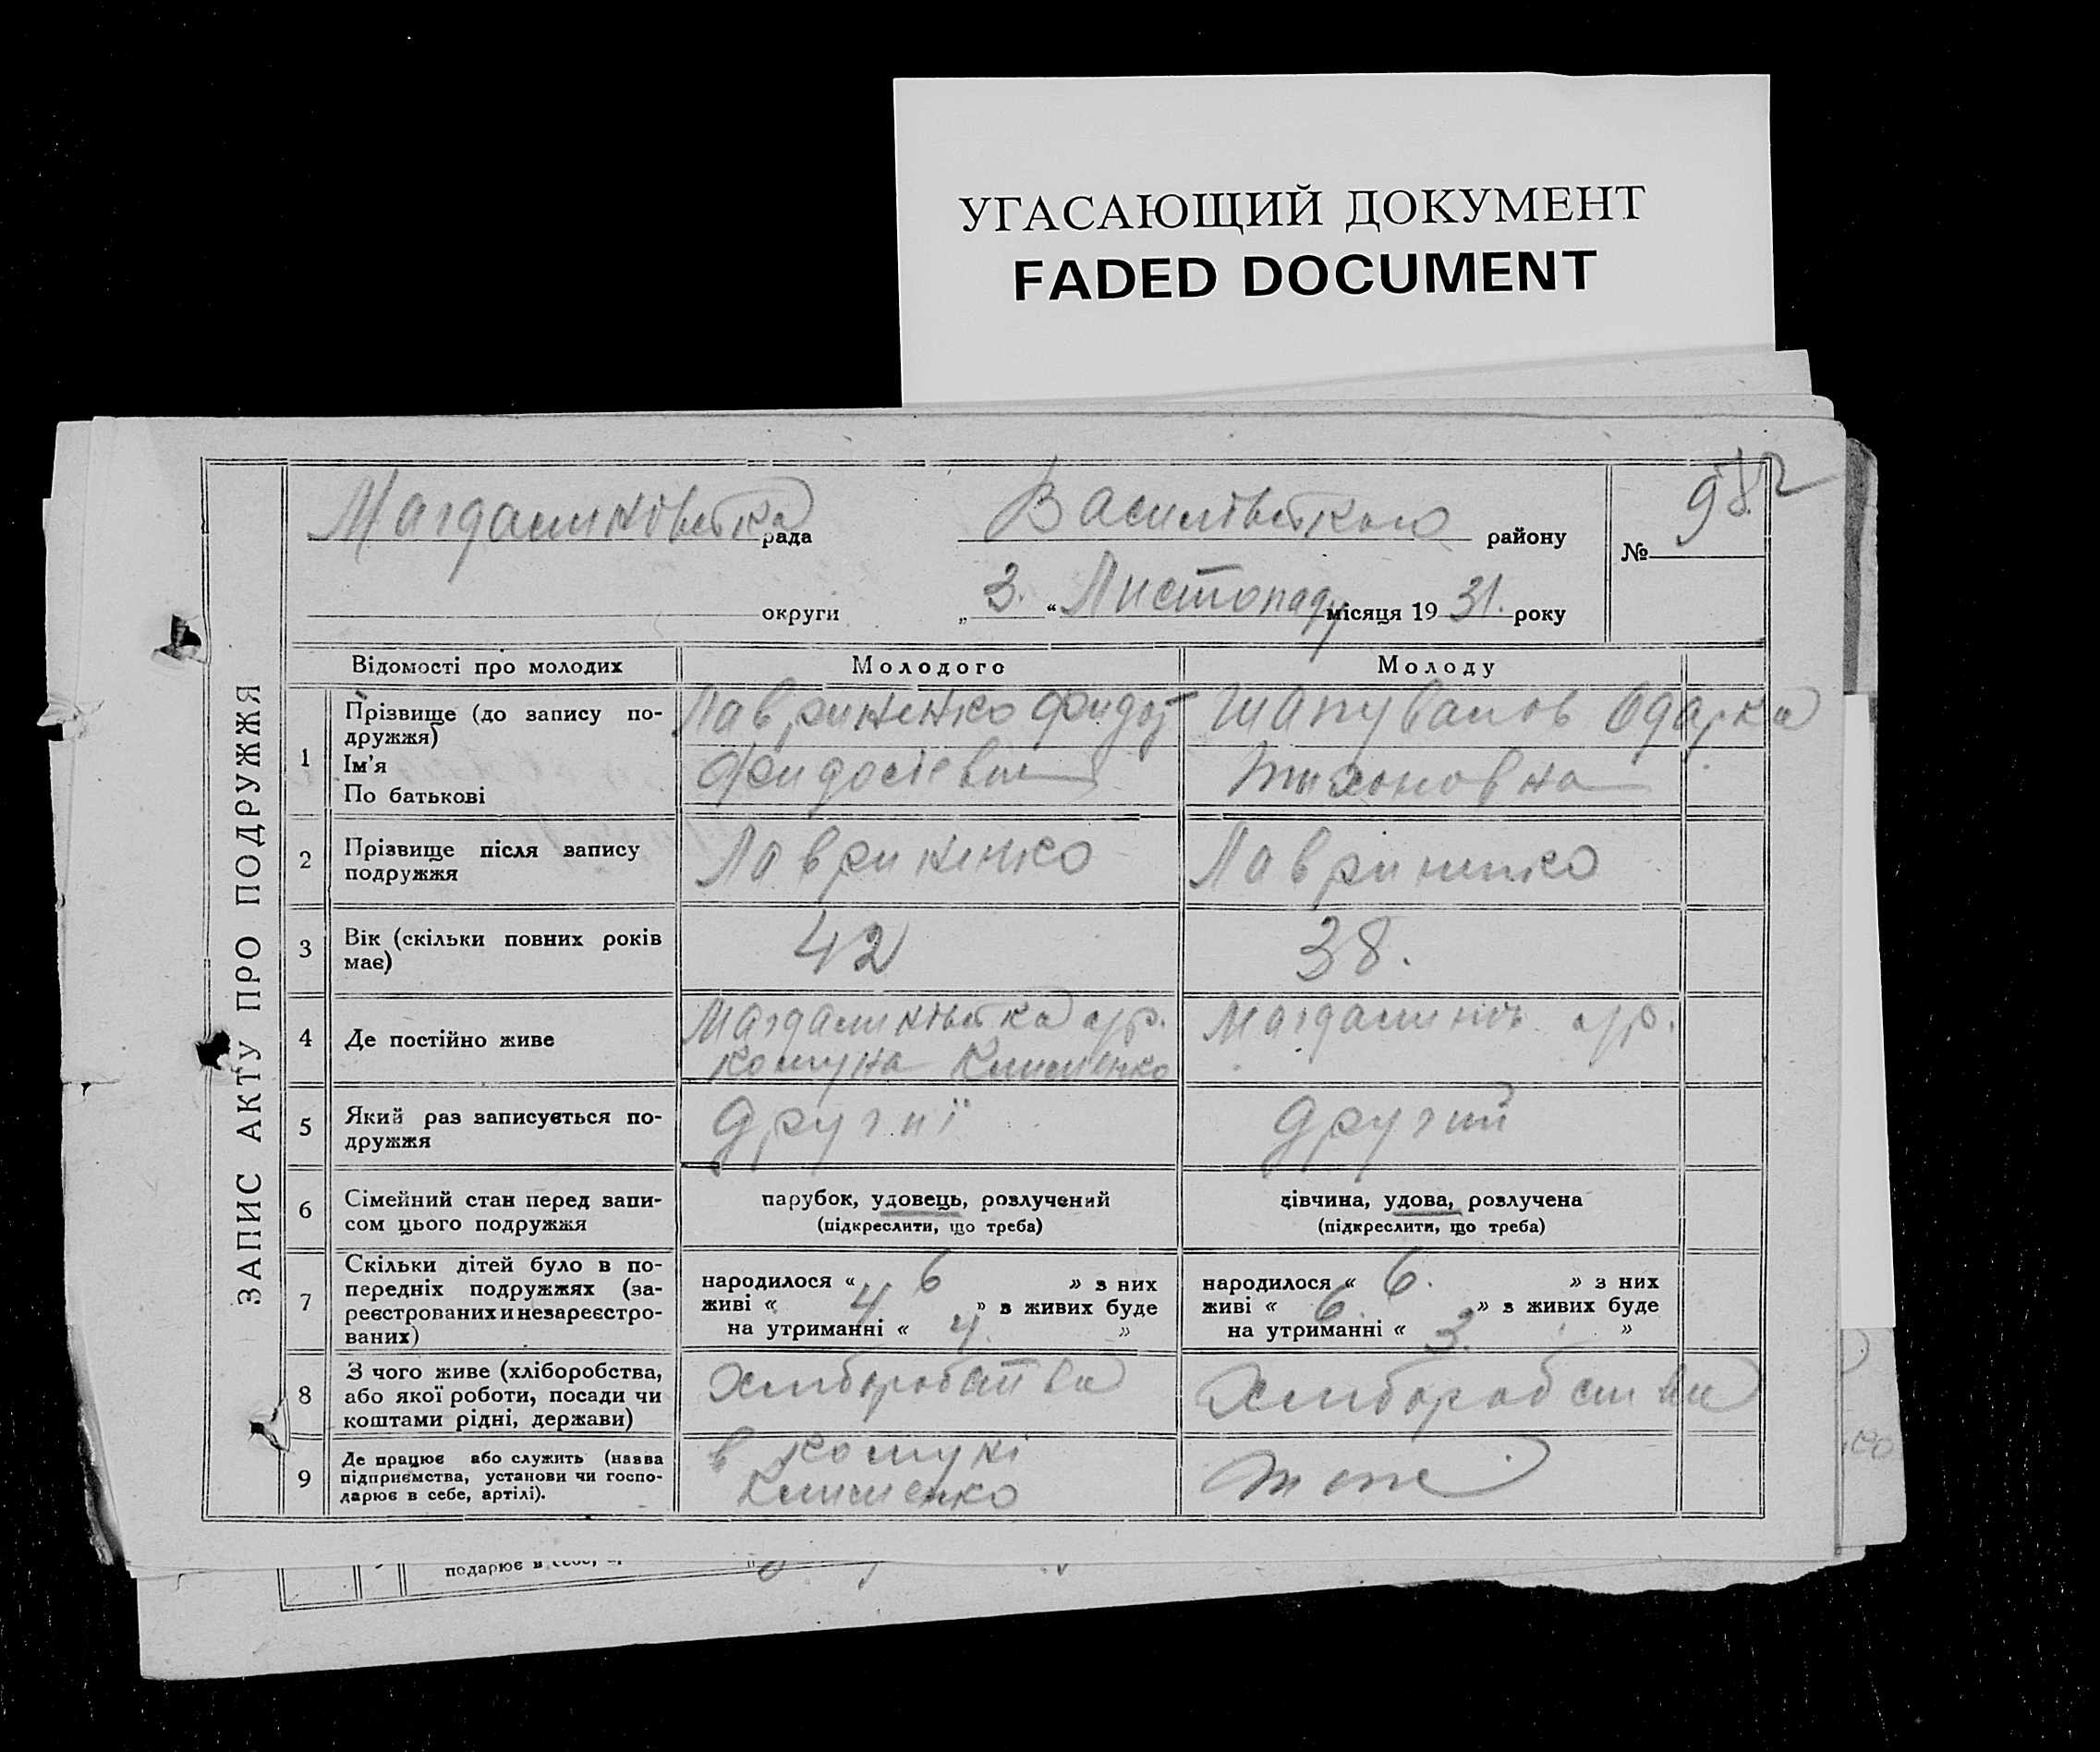 УГАСАЮЩИЙ ДОКУМЕНТ
FADED DOCUMENT
ЗАПИС АКТУ ПРО ПОДРУЖЖЯ
Магдалинівська рада
Василівського району
№ 98
округи
„ 3. “ Листопаду місяця 19 31. року
Відомості про молодих
Молодого
Молоду
1
Прізвище (до запису по-
дружжя)
Ім'я
По батькові
Лавриненко Фидот
Фидосієвич
Шапувалов Одарка
Тихоновна
2
Прізвище після запису
подружжя
Лавриненко
Лавриненко
3
Вік (скільки повних років
має)
42
38.
4
Де постійно живе
Магдалинівська с/р.
комуна Клименко
Магдалинів. с/р.
5
Який раз записується по-
дружжя
другиї
другий
6
Сімейний стан перед запи-
сом цього подружжя
парубок, удовець, розлучений
(підкреслити, що треба)
дівчина, удова, розлучена
(підкреслити, що треба)
7
Скільки дітей було в по-
передніх подружжях (за-
реєстрованих и незареєстро-
ваних)
народилося « 6 » з них
живі « 4 » з живих буде
на утриманні « 4. »
народилося « 6. » з них
живі « 6. » з живих буде
на утриманні « 3. »
8
З чого живе (хліборобства,
або якої роботи, посади чи
коштами рідні, держави)
Хлиборобства
Хлиборобства
9
Де працює або служить (назва
підприємства, установи чи госпо-
дарює в себе, артілі).
в комуні
Клименко
тоже
подарює в себе,